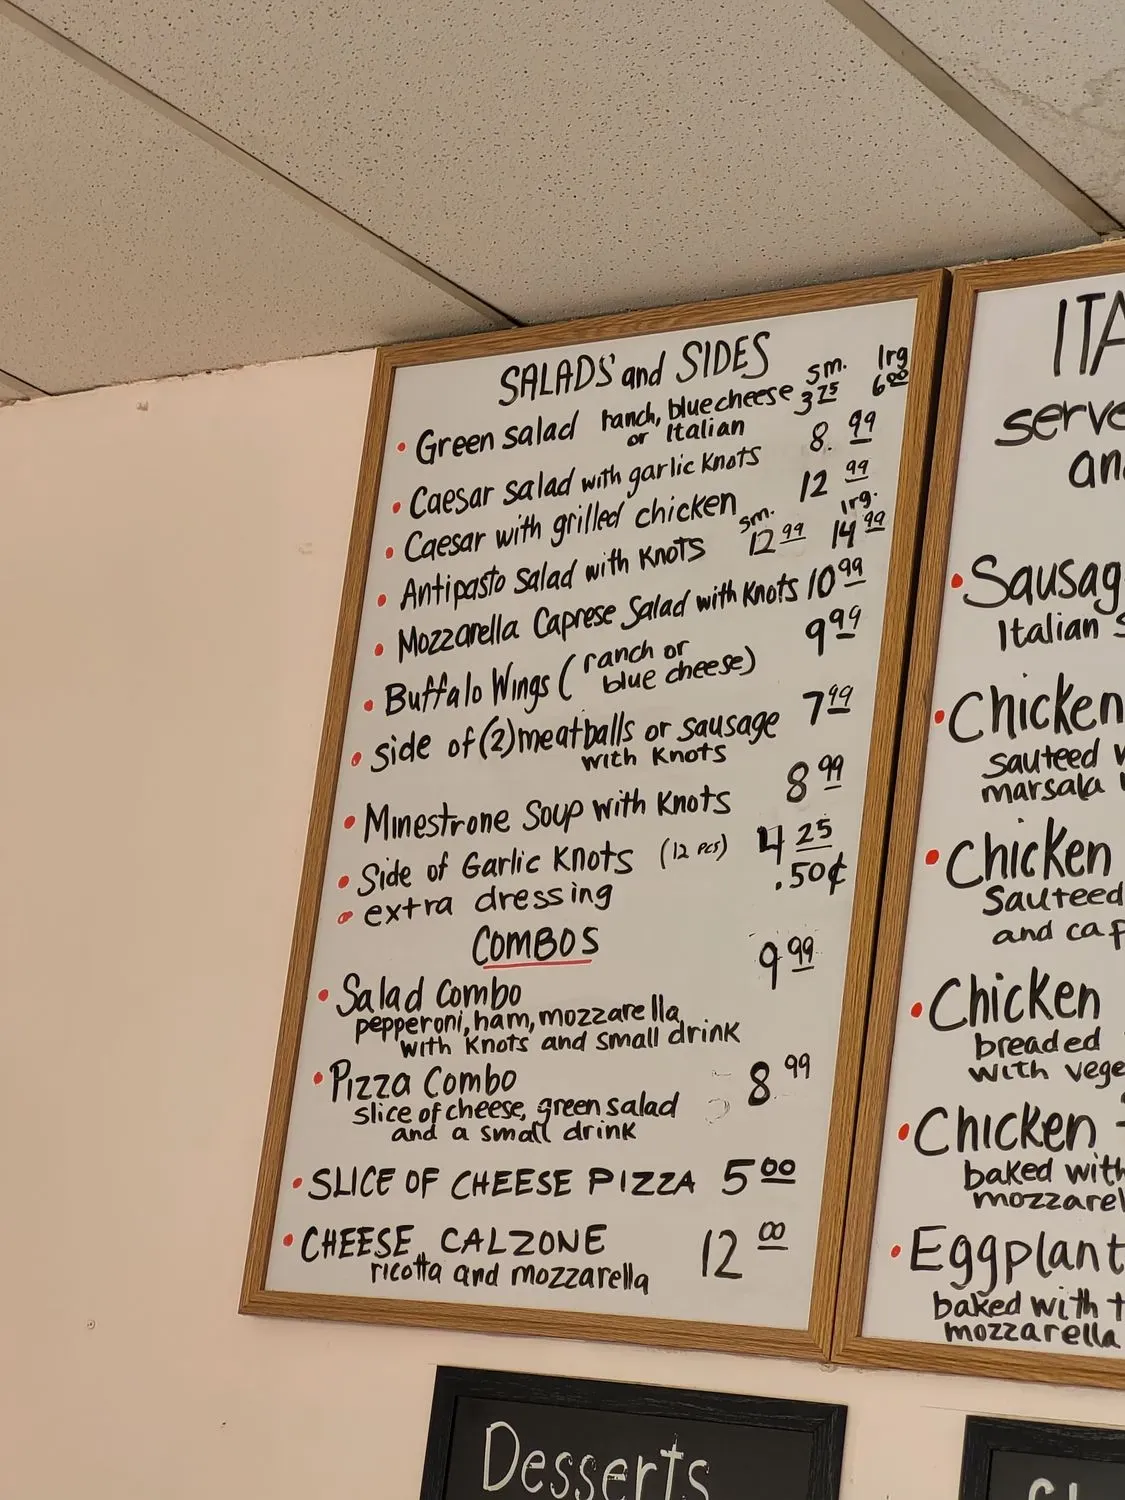 SALADS and SIDES
sm. lrg
Green salad ranch, bluecheese 3.75 6.00
or Italian
Caesar salad with garlic Knots 8.99
Caesar with grilled chicken 12.99
sm. lrg.
Antipasto Salad with Knots 12.99 14.99
Mozzarella Caprese Salad with Knots 10.99
Buffalo Wings (ranch or 9.99
blue cheese)
side of (2) meatballs or sausage 7.99
with Knots
Minestrone Soup with Knots 8.99
Side of Garlic Knots (12 pcs) 4.25
extra dressing .50¢
COMBOS
Salad Combo 9.99
pepperoni, ham, mozzarella
with Knots and small drink
Pizza Combo 8.99
slice of cheese, green salad
and a small drink
SLICE OF CHEESE PIZZA 5.00
CHEESE CALZONE 12.00
ricotta and mozzarella
ITA
serve
an
Sausag
Italian S
Chicken
sauteed w
marsala
Chicken
Sauteed
and cap
Chicken
breaded
with vege
Chicken
baked with
mozzarel
Eggplant
baked with t
mozzarella
Desserts